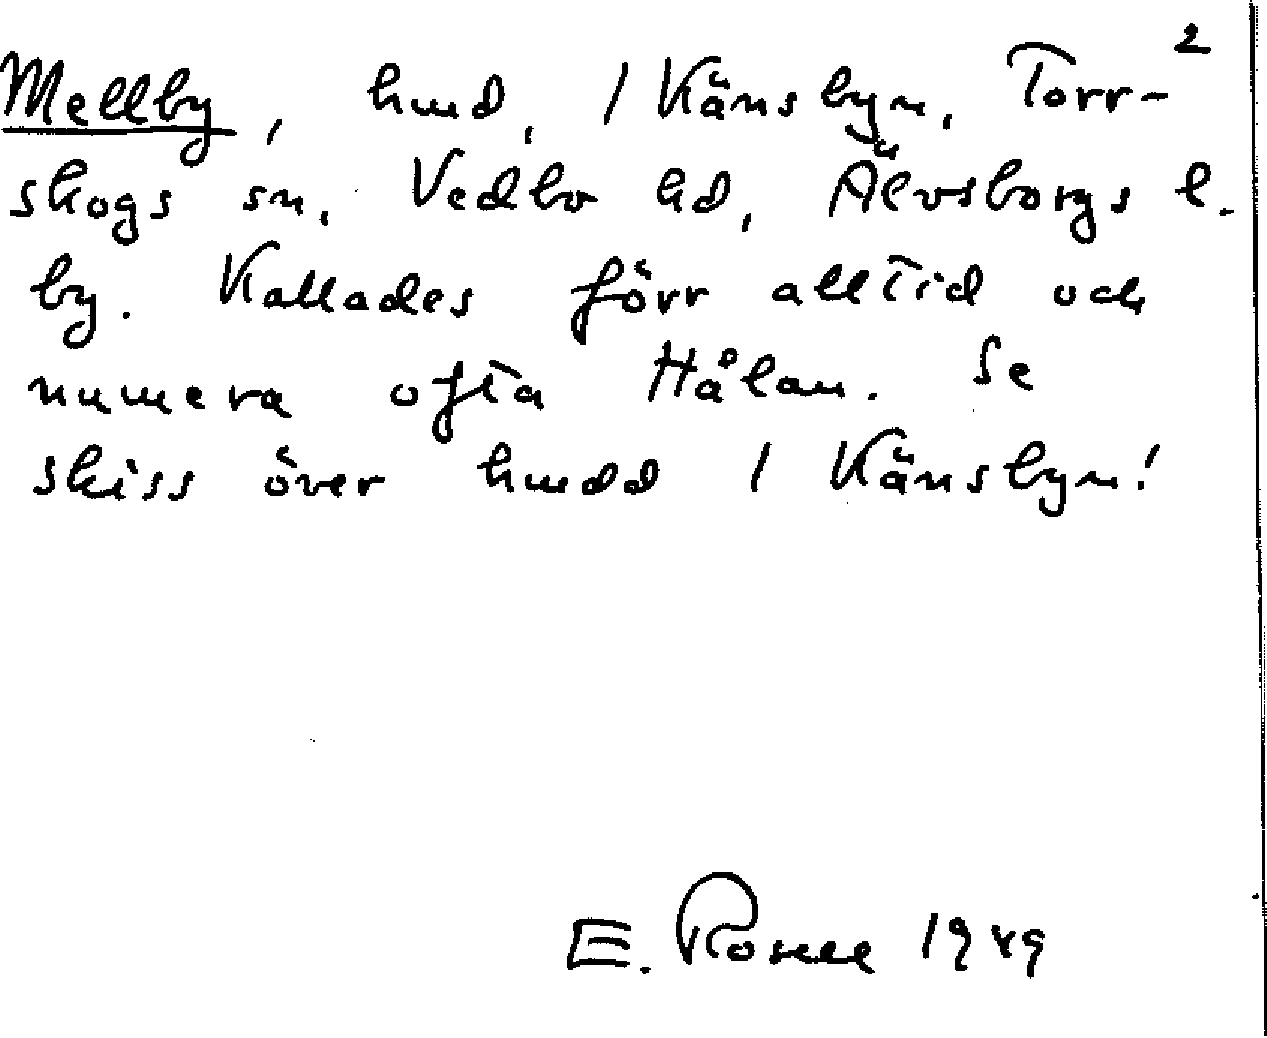 2
Mellby, hmd, 1 Känsbyn, Torr-
skogs sn, Vedbo hd, Älvsborgs l.
by. Kallades förr alltid och
numera ofta Hålan. Se
skiss över hmdd 1 Känsbyn!
E. Rosell 1949